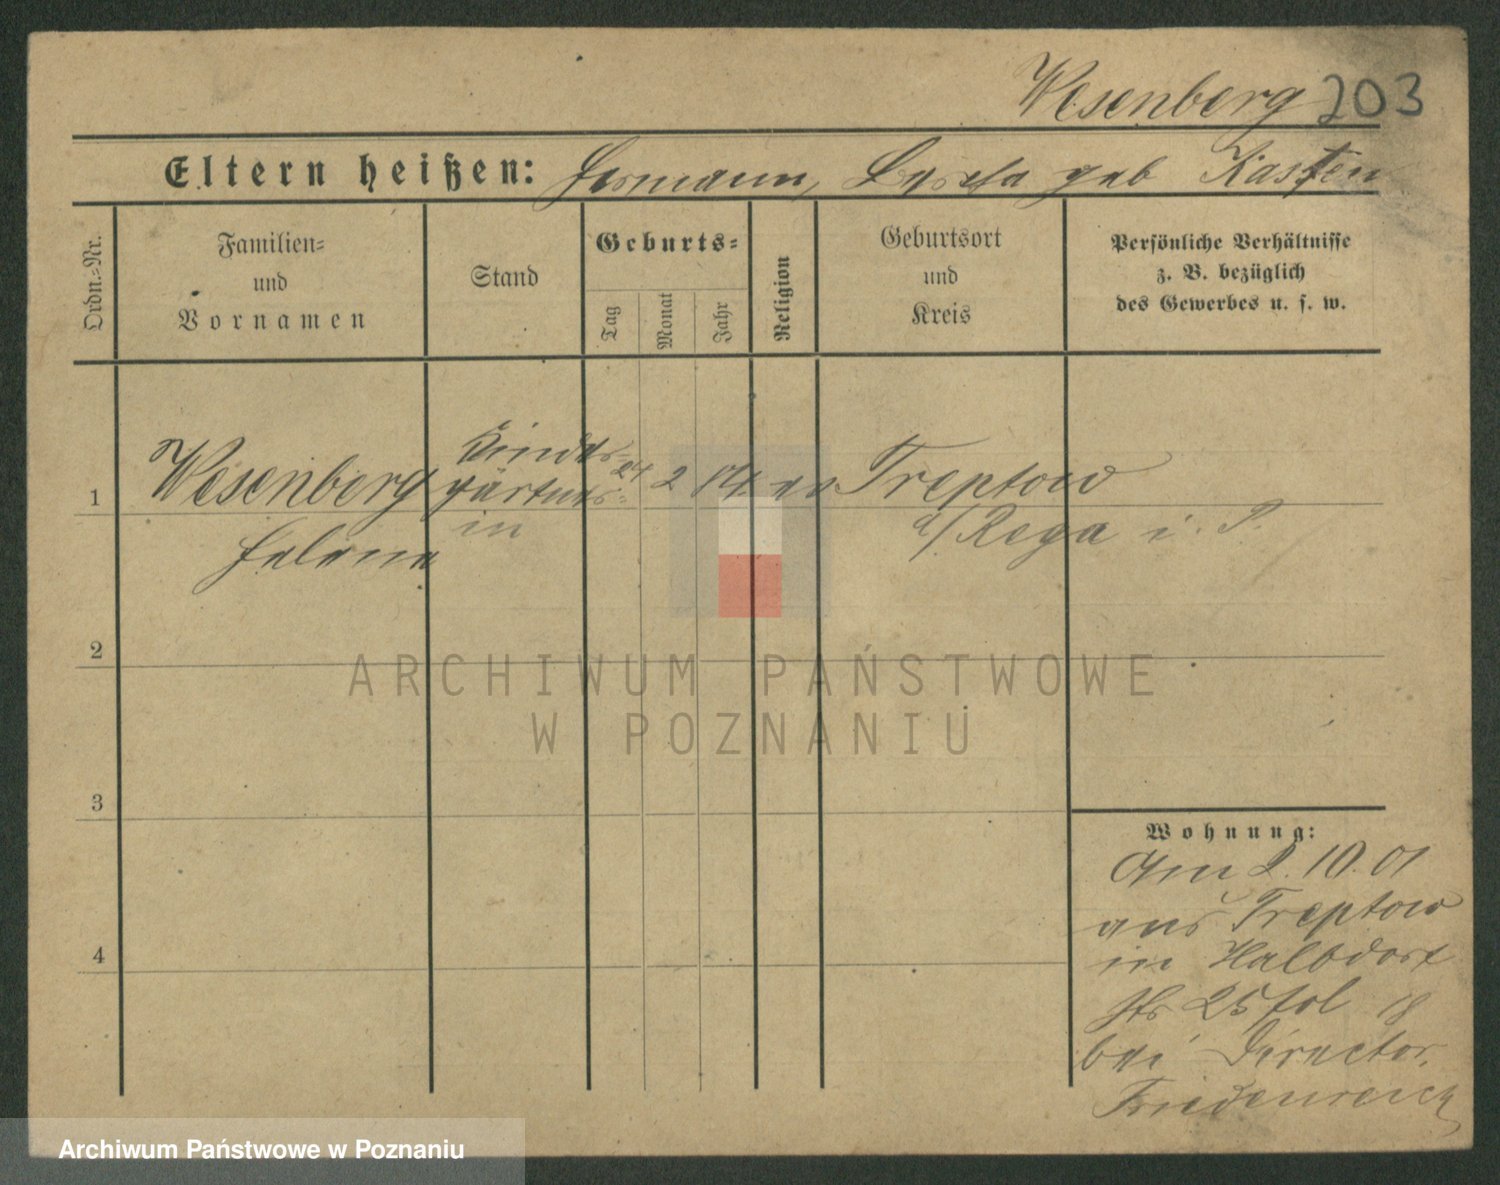 Wesenberg 203
Eltern heißen: Hermann, geb Kasten
Ordn.=Nr.
Familien=
und
Vornamen
Stand
Geburts=
Tag
Monat
Jahr
Religion
Geburtsort
und
Kreis
Persönliche Verhältnisse
z. B. bezüglich
des Gewerbes u. s. w.
1
Wesenberg
Helene
Kinder-
gärtner-
in
24 2 ev
Treptow
a/ Rega i. P.
2
3
4
Wohnung:
Am 2. 10. 01
aus Treptow
in Halbdorf
Str 25
bei Director
Friedenreich
ARCHIWUM PAŃSTWOWE
W POZNANIU
Archiwum Państwowe w Poznaniu